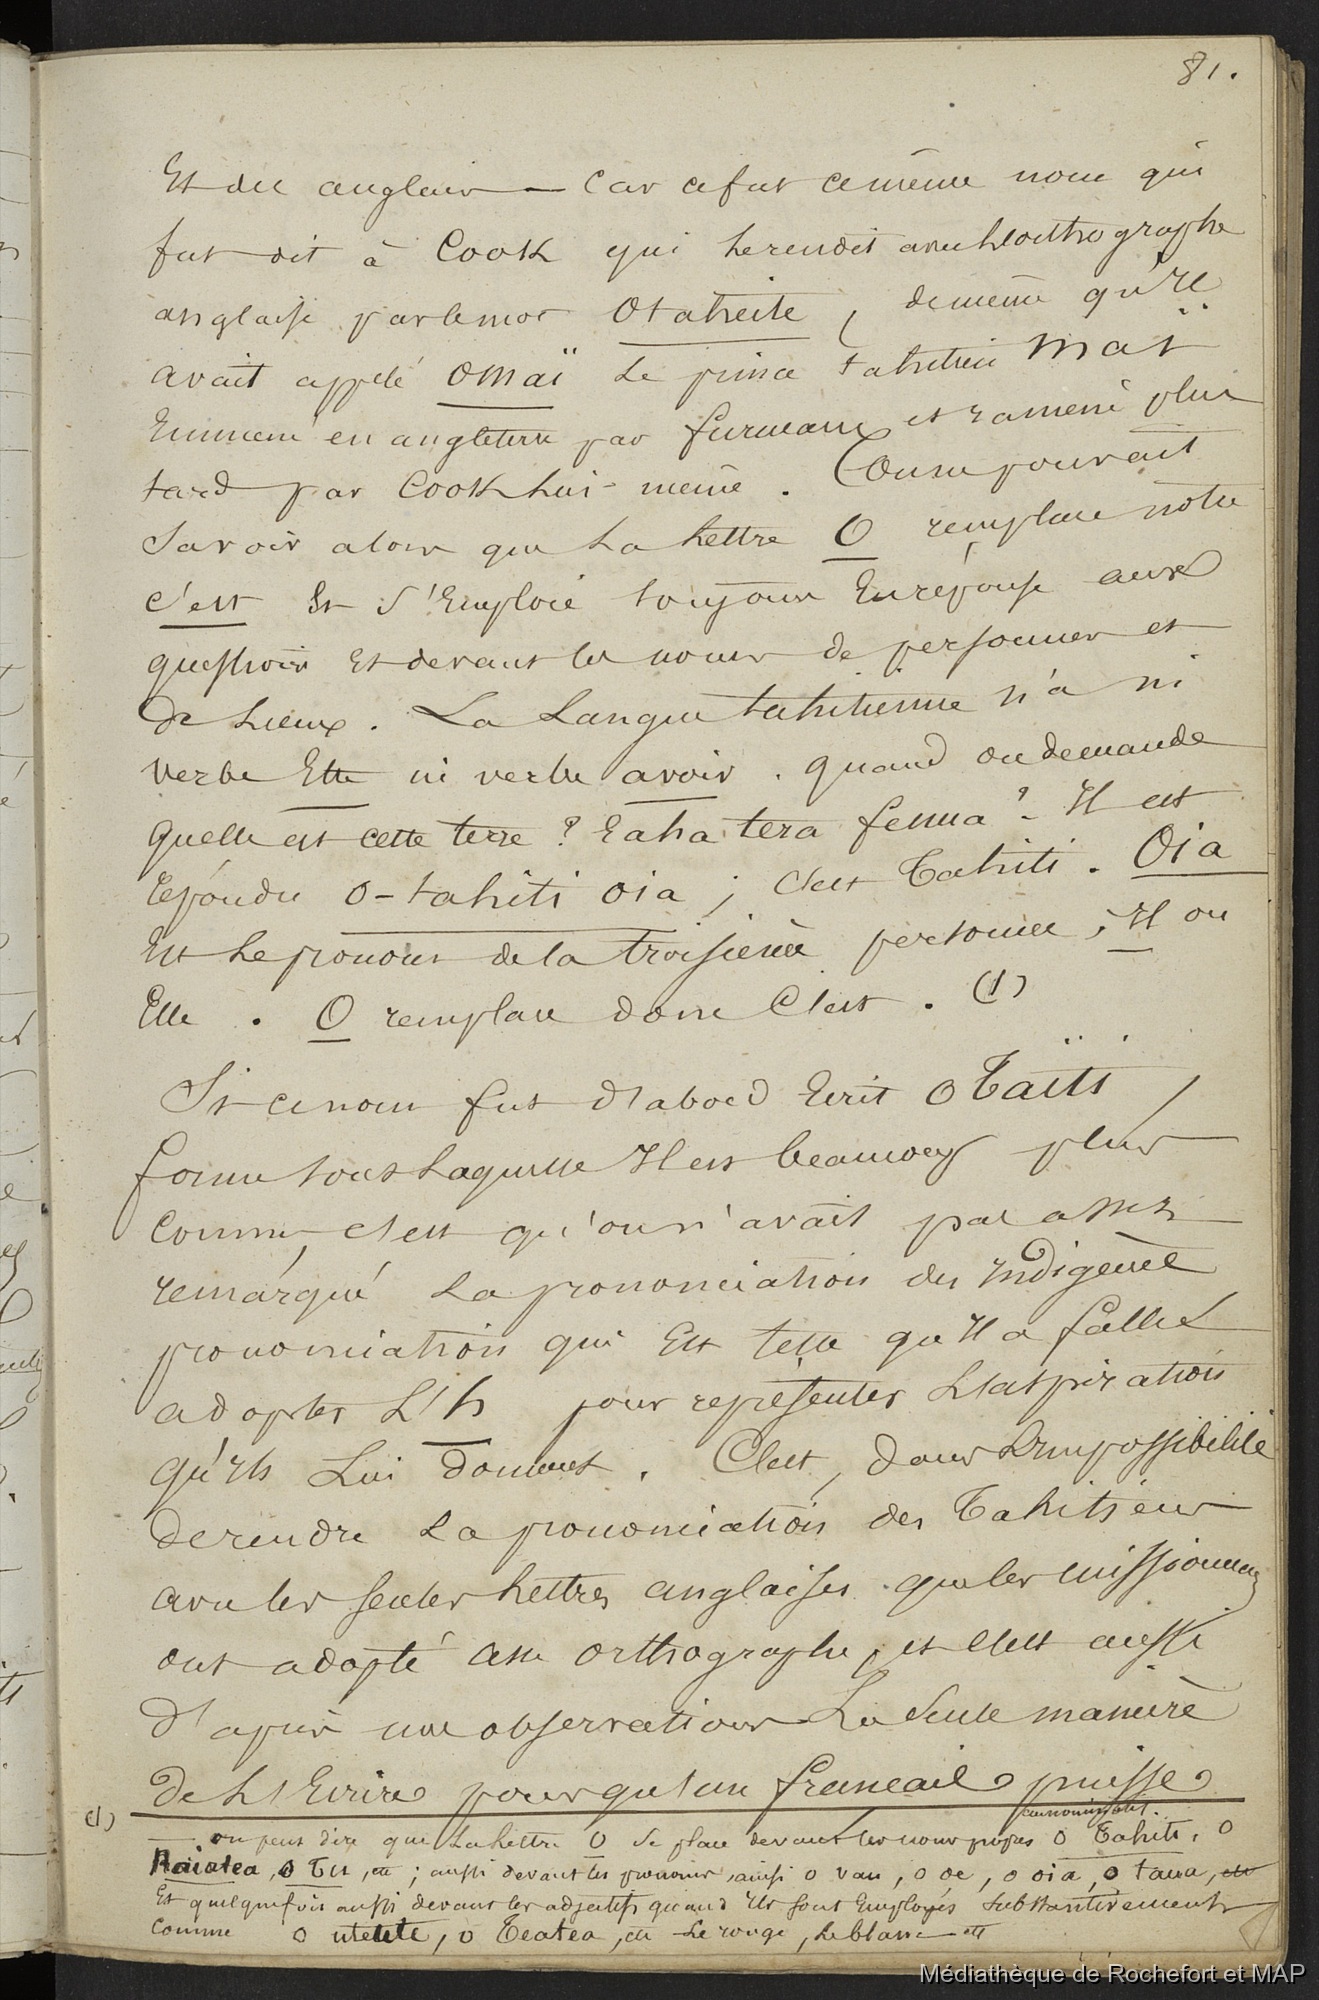 81.
Et du anglais — Car ce fut ce même nom qui
fut dit à Cook qui le rendit avec l'orthographe
anglaise par le mot Otaheite, de même qu'il
avait appelé Omaï le prince tahitien Maï
Emmené en angleterre par furneaux et ramené plus
tard par Cook lui-même. On ne pouvait
Savoir alors que la lettre O remplace notre
c'est Et S'Emploie toujours En réponse aux
questions Et devant les noms de personnes et
de Lieux. La Langue tahitienne n'a ni
verbe Etre ni verbe avoir. quand on demande
quelle est cette terre? Eaha tera fenua? - Il est
répondu O-tahiti oia; C'est Tahiti. Oia
Est le pronom de la troisième personne, Il ou
Elle. O remplace donc C'est. (1)
Si ce nom fut d'abord Ecrit OTaïti,
forme sous laquelle Il est beaucoup plus
connu, c'est qu'on n'avait pas assez
remarqué La prononciation des Indigènes
prononciation qui Est telle qu'Il a fallu
adopter L'h pour représenter L'aspiration
qu'Ils Lui donnent. C'est, dans L'Impossibilité
de rendre La prononciation des Tahitiens
avec les seules lettres anglaises que les missionnaires
ont adopté cette orthographe, et c'est aussi
d'après nos observations La Seule manière
de L'Ecrire pour qu'un français puisse
(1) — on peut dire que La lettre O se place devant les noms propres O Tahiti, O
Raiatea, O Tu, &a; aussi devant les pronoms, ainsi o vau, o oe, o oia, o taua, etc
Et quelquefois aussi devant les adjectifs quand Ils sont Employés Substantivement
Comme o uteute, o Teatea, &a Le rouge, Le blanc etc
Médiathèque de Rochefort et MAP